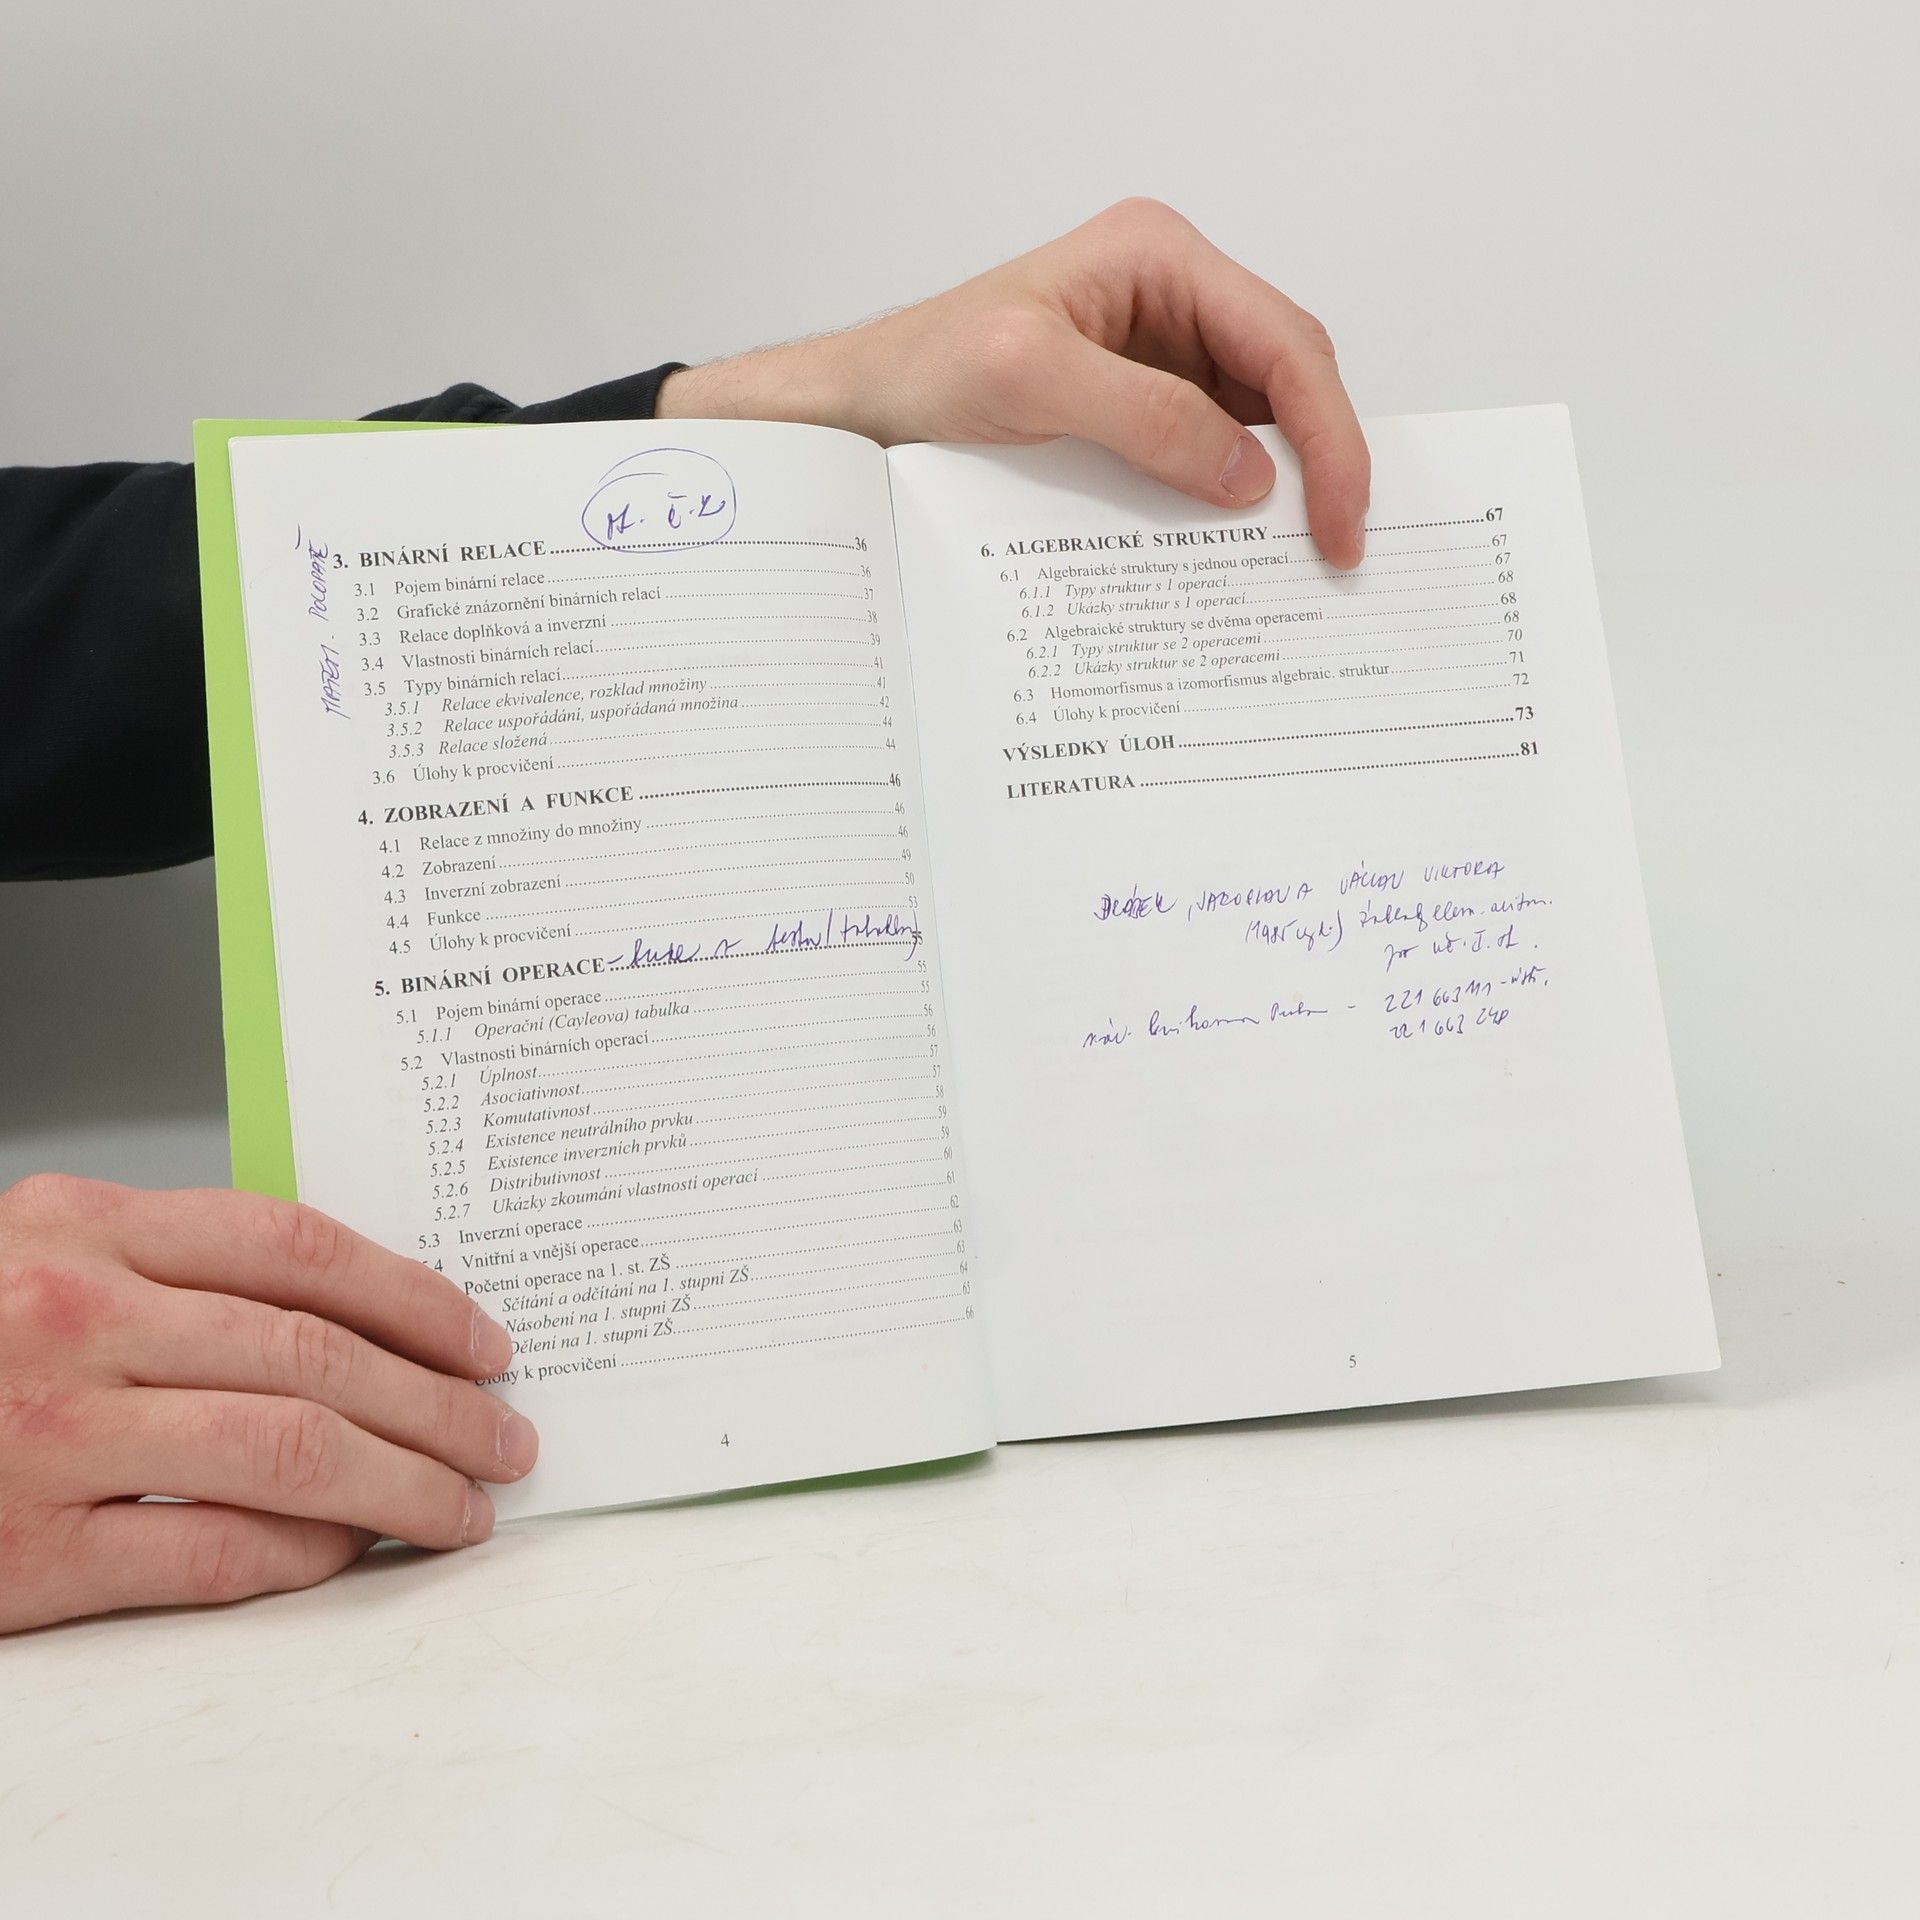 MATEM. POLOPATĚ
3. BINÁRNÍ RELACE 36
3.1 Pojem binární relace 36
3.2 Grafické znázornění binárních relací 37
3.3 Relace doplňková a inverzní 38
3.4 Vlastnosti binárních relací 39
3.5 Typy binárních relací 41
3.5.1 Relace ekvivalence, rozklad množiny 41
3.5.2 Relace uspořádání, uspořádaná množina 42
3.5.3 Relace složená 44
3.6 Úlohy k procvičení 44
4. ZOBRAZENÍ A FUNKCE 46
4.1 Relace z množiny do množiny 46
4.2 Zobrazení 46
4.3 Inverzní zobrazení 49
4.4 Funkce 50
4.5 Úlohy k procvičení 53
5. BINÁRNÍ OPERACE 55
5.1 Pojem binární operace 55
5.1.1 Operační (Cayleova) tabulka 55
5.2 Vlastnosti binárních operací 56
5.2.1 Úplnost 56
5.2.2 Asociativnost 57
5.2.3 Komutativnost 57
5.2.4 Existence neutrálního prvku 58
5.2.5 Existence inverzních prvků 59
5.2.6 Distributivnost 59
5.2.7 Ukázky zkoumání vlastností operací 60
5.3 Inverzní operace 61
4 Vnitřní a vnější operace 62
Početní operace na 1. st. ZŠ 63
Sčítání a odčítání na 1. stupni ZŠ 63
Násobení na 1. stupni ZŠ 64
Dělení na 1. stupni ZŠ 65
k procvičení 66
4
6. ALGEBRAICKÉ STRUKTURY 67
6.1 Algebraické struktury s jednou operací 67
6.1.1 Typy struktur s 1 operací 67
6.1.2 Ukázky struktur s 1 operací 68
6.2 Algebraické struktury se dvěma operacemi 68
6.2.1 Typy struktur se 2 operacemi 68
6.2.2 Ukázky struktur se 2 operacemi 70
6.3 Homomorfismus a izomorfismus algebraic. struktur 71
6.4 Úlohy k procvičení 72
VÝSLEDKY ÚLOH 73
LITERATURA 81
JAROSLAV A VÁCLAV VIKTORA
221 663 111
221 663 248
5